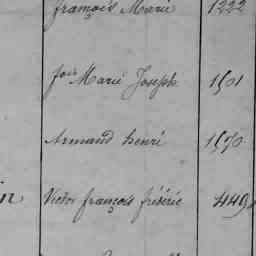 françois Marie 1222
Marie Joseph 1501
Armand henri 1570
in Victor françois frédéric 449